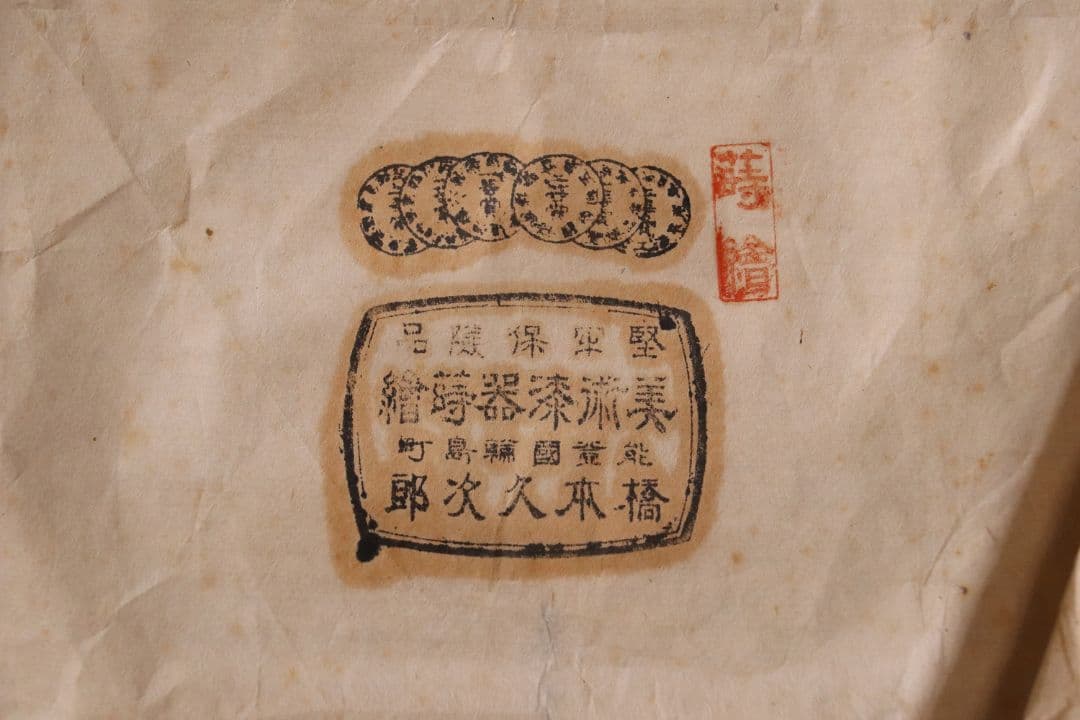 蒔繪
堅牢保險品
美術漆器蒔繪
能登國輪島町
橋本久次郎